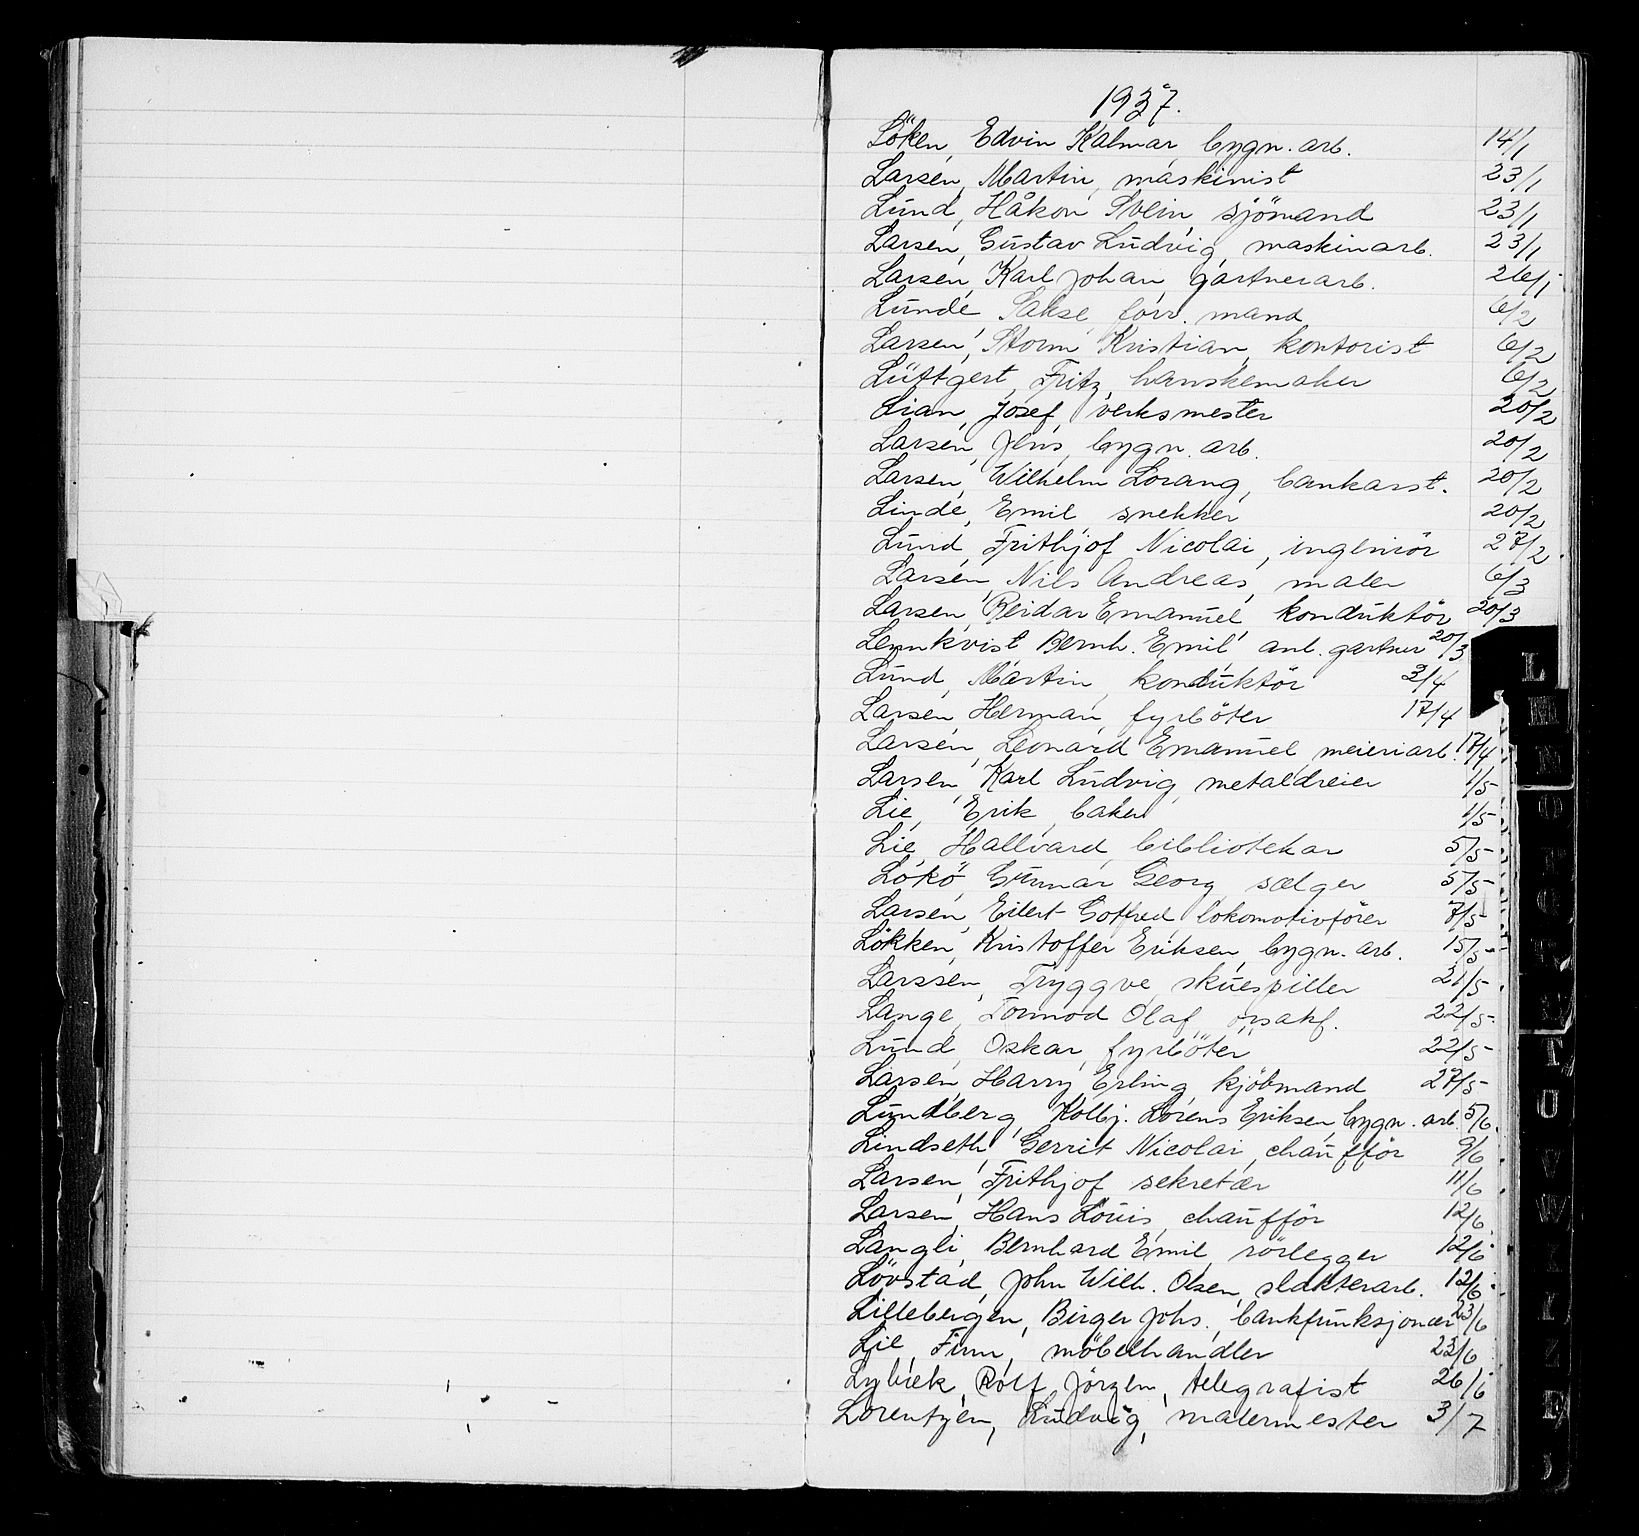 1937.
Löken, Edvin Kalmar, bygn. arb. 14/1
Larsen, Martin, maskinist 23/1
Lund, Håkon Svein, sjömand 23/1
Larsen, Gustav Ludvig, maskinarb. 23/1
Larsen, Karl Johan, gartnerarb. 26/1
Lunde Sakse, forr. mand 6/2
Larsen, Storm Kristian, kontorist 6/2
Lüttgert, Fritz, hanskemaker 6/2
Lian, Josef, verksmester 20/2
Larsen, Jens, bygn. arb. 20/2
Larsen, Wilhelm Lorang, bankasst. 20/2
Linde, Emil snekker 20/2
Lund, Frithjof Nicolai, ingeniör 27/2
Larsen, Nils Andreas, maler 6/3
Larsen, Reidar Emanuel konduktör 20/3
Lennkvist Bernh. Emil anl. gartner 20/3
Lund, Martin, konduktör 3/4
Larsen, Herman, fyrböter 17/4
Larsen, Leonard Emanuel, meieriarb. 17/4
Larsen, Karl Ludvig, metaldreier 1/5
Lie, Erik, baker 1/5
Lie, Hallvard, bibliotekar 5/5
Lökö, Gunnar Georg, sælger 5/5
Larsen, Eilert Gotfred, lokomotivförer 7/5
Lökken, Kristoffer Eriksen, bygn. arb. 15/5
Larssen, Tryggve, skuespiller 21/5
Lange, Tormod Olaf, orsakf. 22/5
Lund, Oskar, fyrböter 22/5
Larsen, Harry Erling, kjöbmand 27/5
Lundberg, Kolbj. Lorens Eriksen, bygn. arb. 5/6
Lindseth, Gerrit Nicolai, chaufför 9/6
Larsen, Frithjof sekretær 11/6
Larsen, Hans Louis, chaufför 12/6
Langli, Bernhard Emil, rörlegger 12/6
Lövstad, John Wilh. Olsen, slakterarb. 12/6
Lillebergen, Birger Johs., bankfunksjonær 23/6
Lie, Finn, möbelhandler 23/6
Lybæk, Rolf Jörgen, telegrafist 26/6
Lorentzen, Ludvig, malermester 3/7
L
M
N
O
P
Q
R
S
T
U
V
W
X
Y
Z
Æ